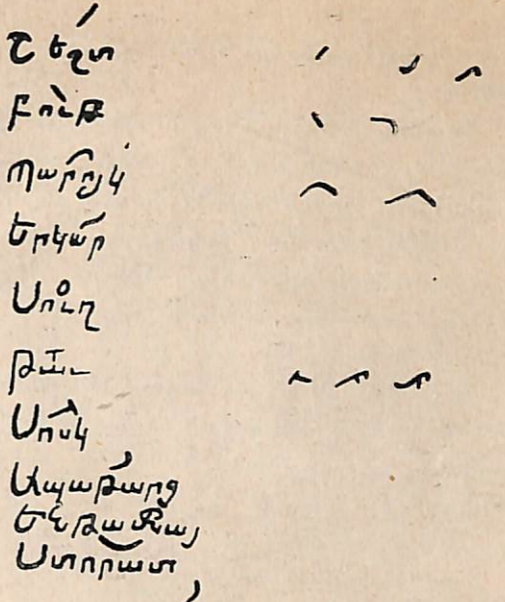 Շեշտ
Բութ
Պարոյկ
Երկար
Սուղ
Թաւ
Սոսկ
Ապաթարց
Ենթամնայ
Ստորատ